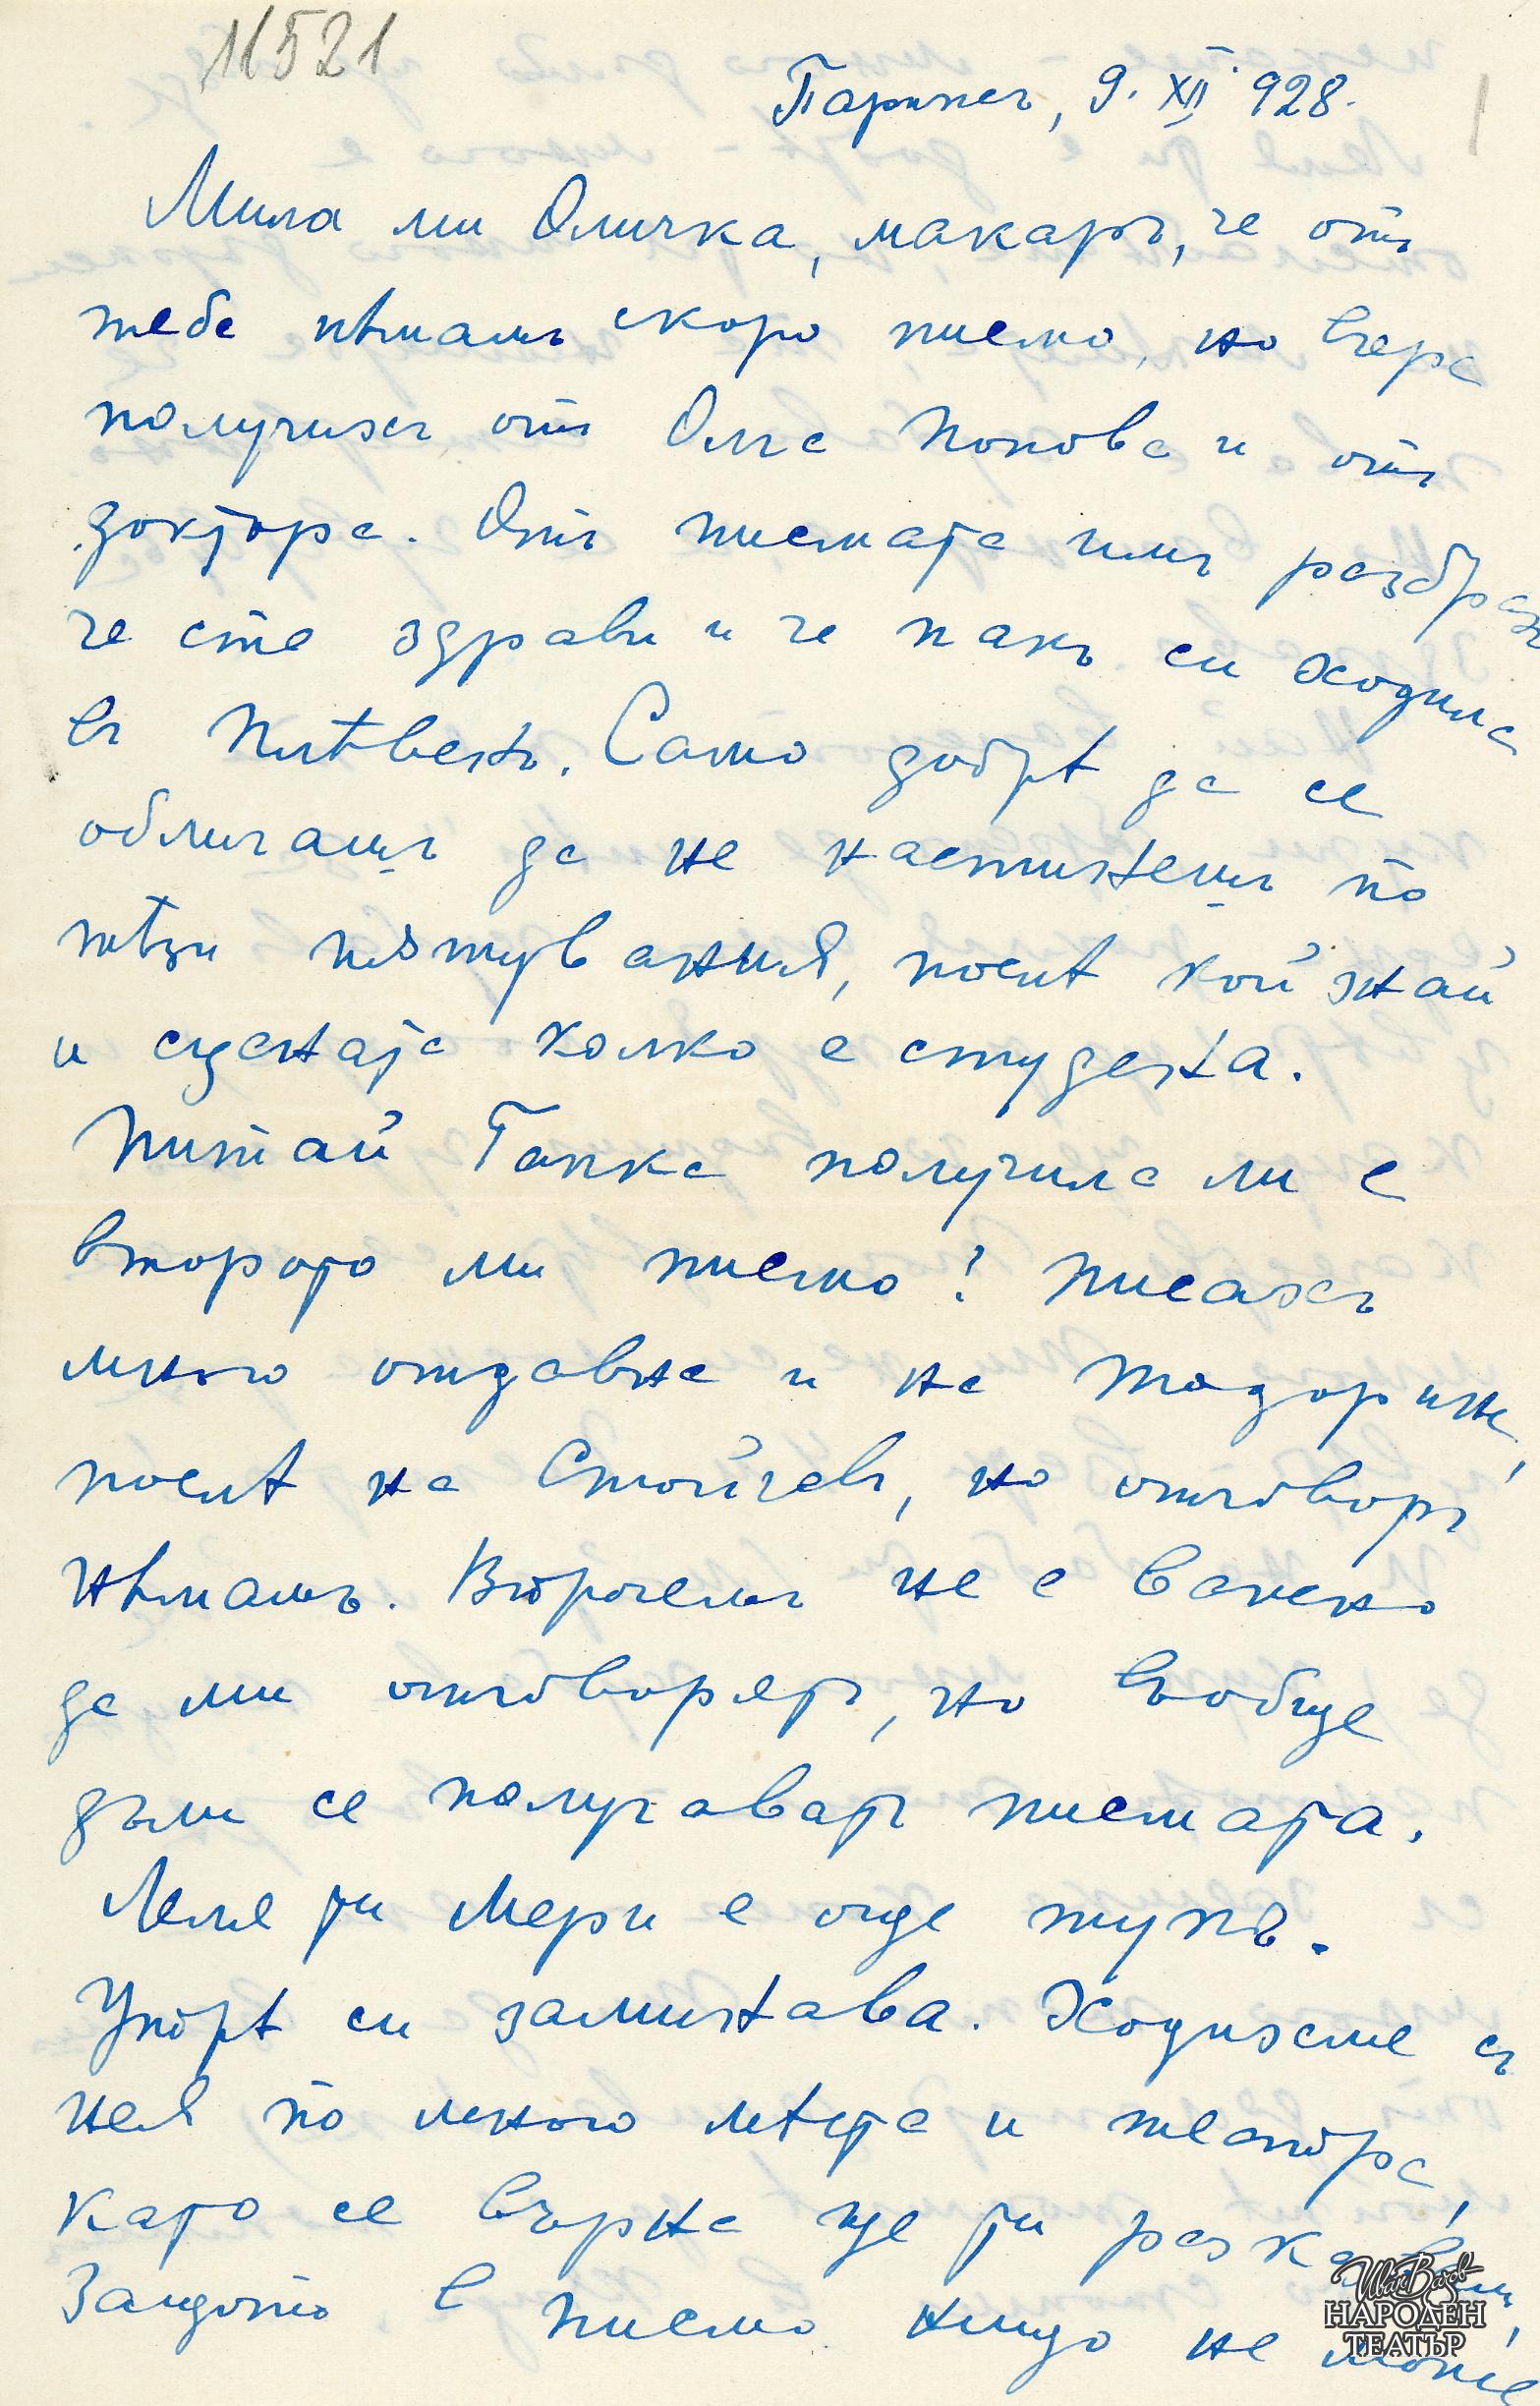 11521
1
Парижъ, 9. XII 928.
Мила ми Оличка, макаръ, че отъ
тебе нѣмамъ скоро писмо, но вчера
получихъ отъ Олга Попова и отъ
доктора. Отъ писмата имъ разбрахъ
че сте здрави и че пакъ си ходила
въ Плѣвенъ. Само добрѣ да се
обличашъ да не настинешъ по
тѣзи пѫтувания, послѣ кой знай
и сцената колко е студена.
Питай Ганка получила ли е
второто ми писмо? Писахъ
много отдавна и на Тодорина,
послѣ на Стойчевъ, но отговоръ
нѣмамъ. Впрочемъ не е важно
да ми отговорятъ, но въобще
дали се получаватъ писмата.
Леля ти Мери е още тукъ.
Упорѣ си заминава. Ходихме съ
нея по много мѣста и театра,
като се върна ще ти разкажа,
Защото въ писмо нищо не може
Иван Вазов
НАРОДЕН
ТЕАТЪР